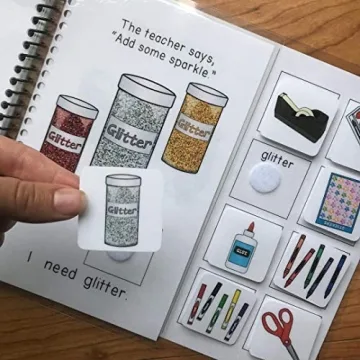 The teacher says,
"Add some sparkle."
Glitter
Glitter
Glitter
glitter
Glitter
GLUE
I need glitter.